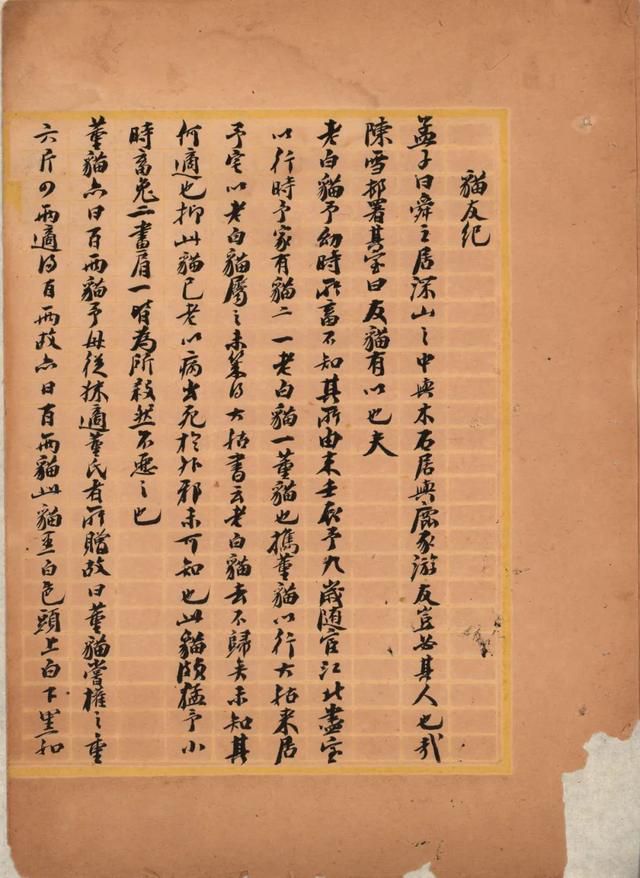 貓友纪
孟子曰舜之居深山之中與木石居與鹿豕游友豈必其人也哉
陳雪邨署其室曰友貓有以也夫
老白貓予幼時所畜不知其所由来壬辰予九歲随宦江北盡室
以行時予家有貓二一老白貓一董貓也携董貓以行大姑来居
予室以老白貓屬之未筞得大姑書云老白貓去不歸矣未知其
何適也抑此貓已老以病出死於外邪未可知也此貓頗猛予小
時畜兔二畫眉一皆為所殺然不惡之也
董貓亦曰百兩貓予母從妹適董氏者所贈故曰董貓嘗權之重
六斤四兩適得百兩故亦曰百兩貓此貓亙白色頭上白下黑如